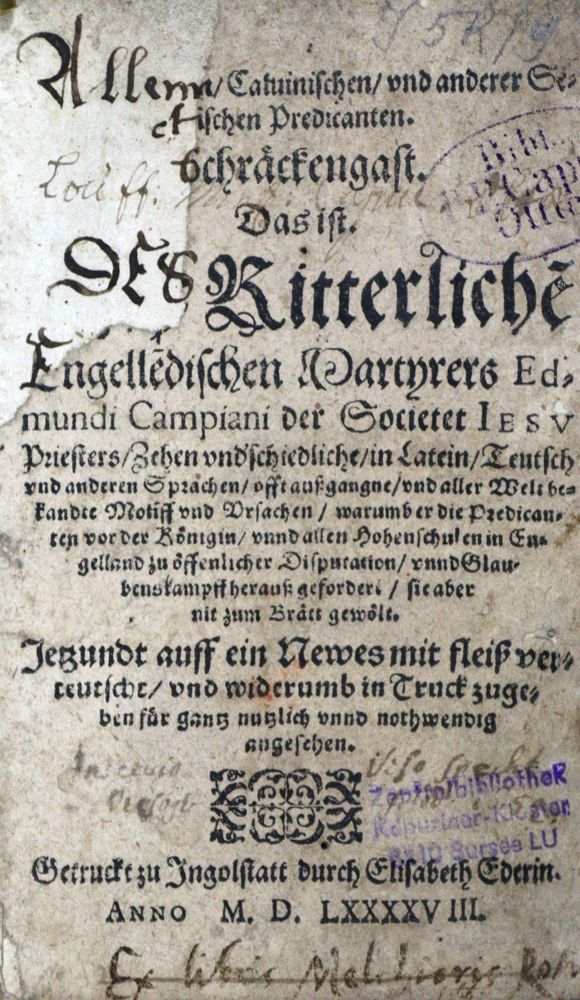 Allenn/Caluinischen/vnd anderer Se-
ctischen Predicanten.
Schräckengast.
Das ist.
DES Ritterlichē
Engellēdischen Martyrers Ed-
mundi Campiani der Societet IESV
Priesters/Zehen vnd schiedliche/in Latein/Teutsch
vnd anderen Sprachen/offt außgangne/vnd aller Welt be-
kandte Motiff vnd Vrsachen/warumb er die Predican-
ten vor der Königin/vnnd allen Hohenschulen in En-
gelland zu öffenlicher Disputation/vnnd Glau-
benskampff herauß gefordert/sie aber
nit zum Brätt gewölt.
Jetzundt auff ein Newes mit fleiß ver-
teutscht/vnd widerumb in Truck zuge-
ben für gantz nutzlich vnnd nothwendig
angesehen.
Zentralbibliothek
Kapuziner-Kloster
6210 Sursee LU
Getruckt zu Jngolstatt durch Elisabeth Ederin.
ANNO M. D. LXXXXVIII.
Ex libris